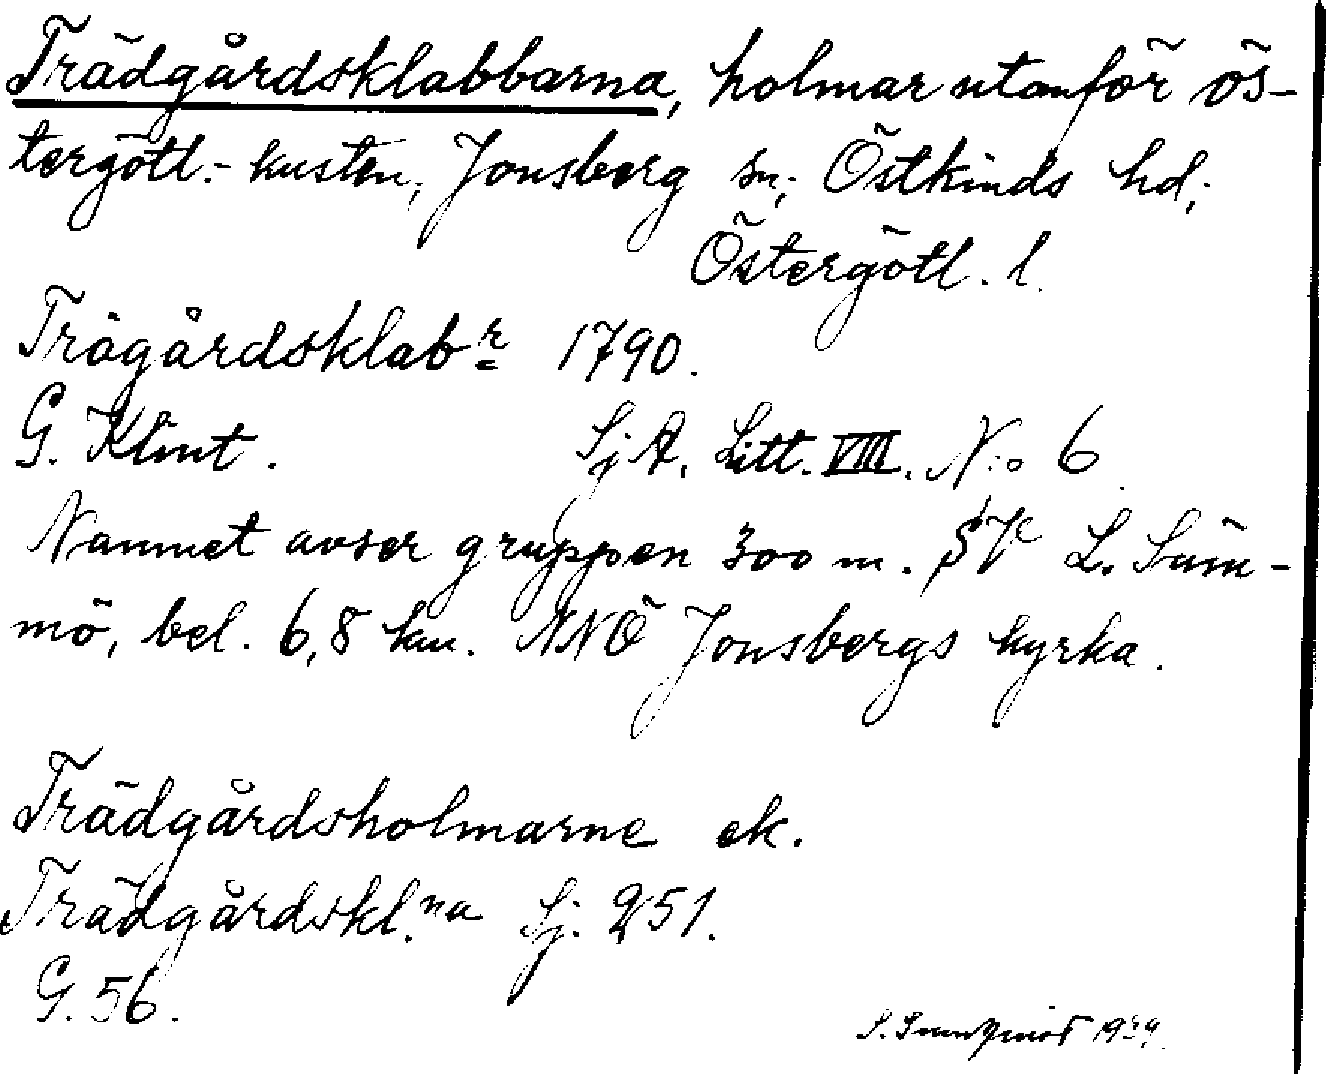 Trädgårdsklabbarna, holmar utanför ös-
tergötl.-kusten, Jonsberg sn; Östkinds hd;
Östergötl. l.
Trägårdsklabr 1790.
G. Klint. SjA. Litt. VIII. N:o 6
Namnet avser gruppen 300 m. SV L.
mö, bel. 6,8 km. NNÖ Jonsbergs kyrka.
Trädgårdsholmarne ek.
Trädgårdskl.na Sj. 251.
G. 56.
S.